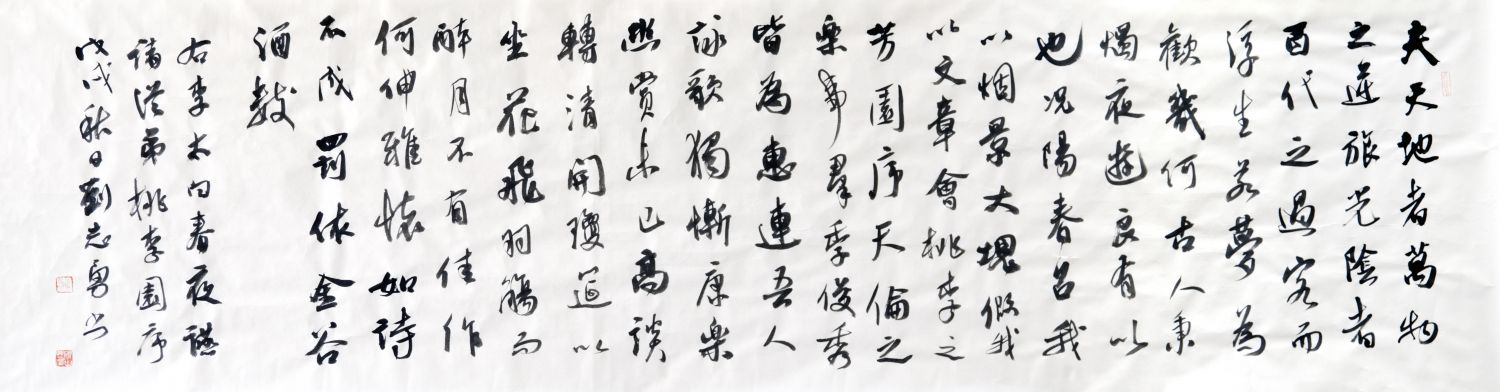 夫天地者萬物
之逆旅光陰者
百代之過客而
浮生若夢為
歡幾何古人秉
燭夜遊良有以
也況陽春召我
以烟景大塊假我
以文章會桃李之
芳園序天倫之
樂事羣季俊秀
皆為惠連吾人
詠歌獨慚康樂
幽賞未已高談
轉清開瓊筵以
坐花飛羽觴而
醉月不有佳作
何伸雅懷如詩
不成罰依金谷
酒數
右李太白春夜讌
諸從弟桃李園序
戊戌秋日劉志勇書